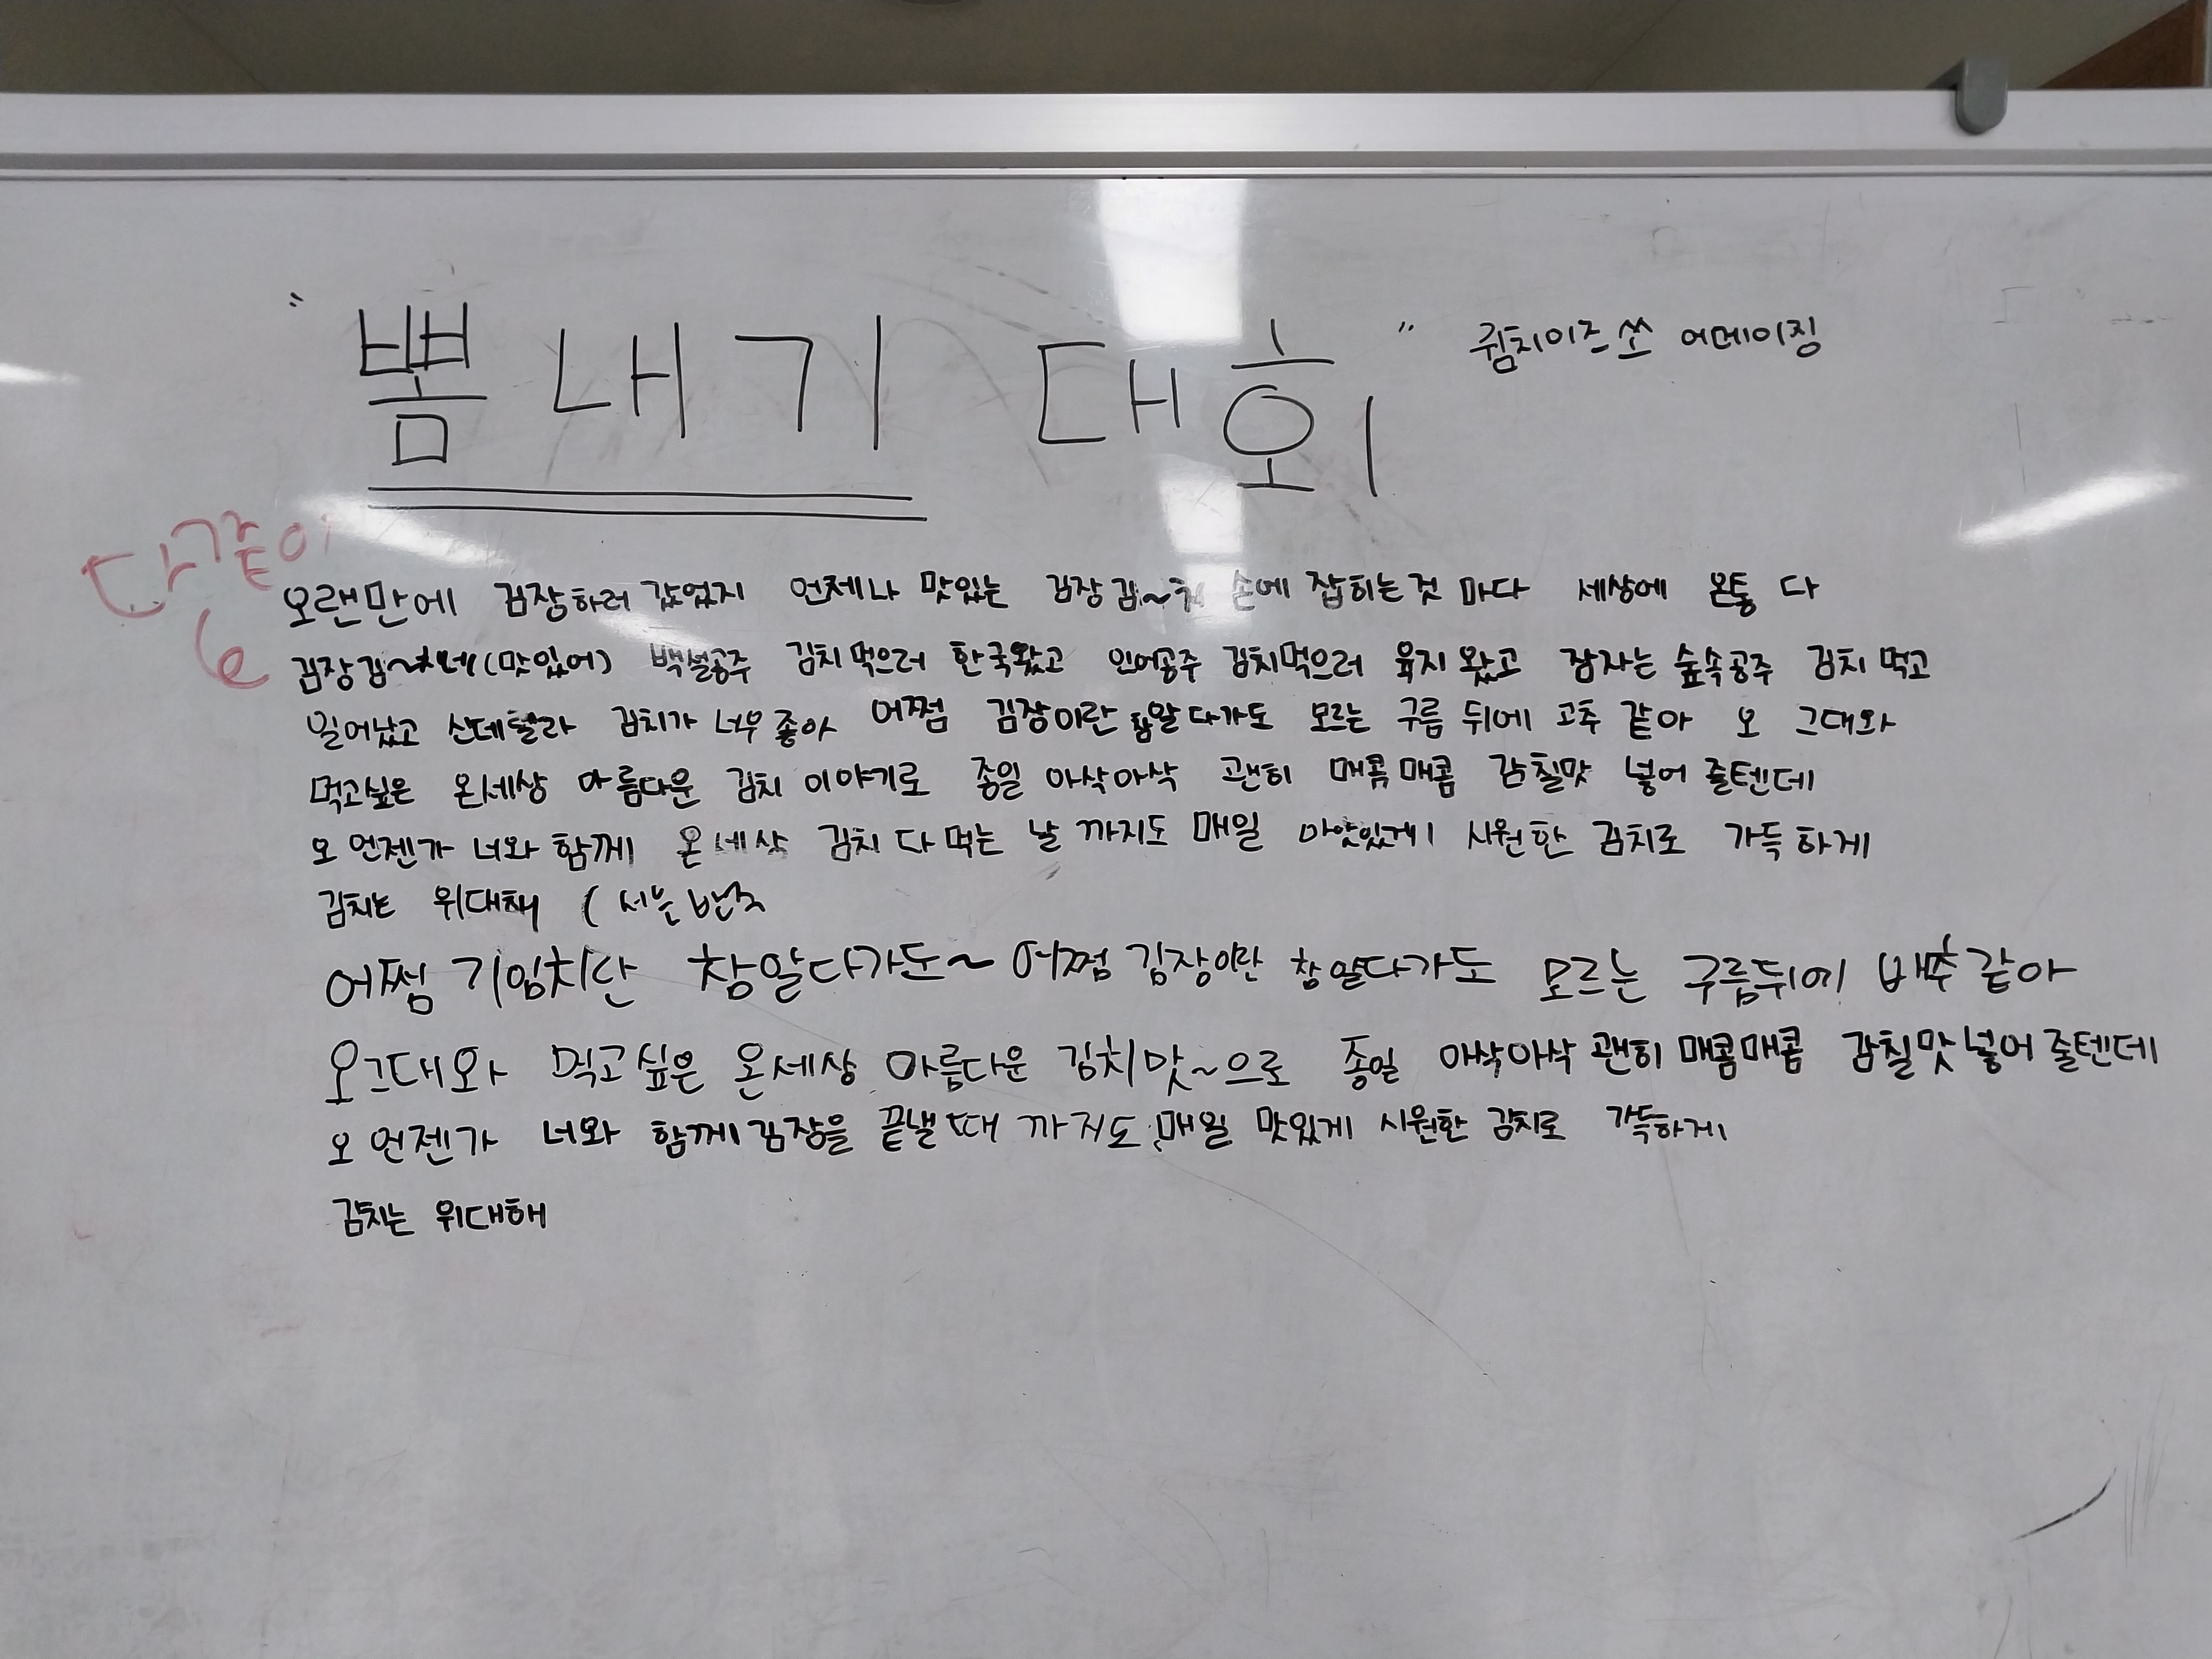 " 뽐내기 대회 " 큄치이즈 쏘 어메이징
다같이
오랜만에 김장하러 갔었지 언제나 맛있는 김장김~치 손에 잡히는것 마다 세상에 온통 다
김장김~치네(맛있어) 백설공주 김치먹으러 한국왔고 인어공주 김치먹으러 육지왔고 잠자는 숲속공주 김치 먹고
일어났고 신데렐라 김치가 너무 좋아 어쩜 김장이란 참알다가도 모르는 구름 뒤에 고추 같아 오 그대와
먹고싶은 온세상 아름다운 김치 이야기로 종일 아삭아삭 괜히 매콤매콤 감칠맛 넣어 줄텐데
오 언젠가 너와 함께 온세상 김치 다 먹는 날 까지도 매일 마앗있게 시원한 김치로 가득하게
김치는 위대해 (
어쩜 기임치란 참알다가도~ 어쩜 김장이란 참알다가도 모르는 구름뒤에 배추 같아
오그대와 먹고싶은 온세상 아름다운 김치맛~으로 종일 아삭아삭 괜히 매콤매콤 감칠맛 넣어 줄텐데
오 언젠가 너와 함께 김장을 끝낼때 까지도 매일 맛있게 시원한 김치로 가득하게
김치는 위대해